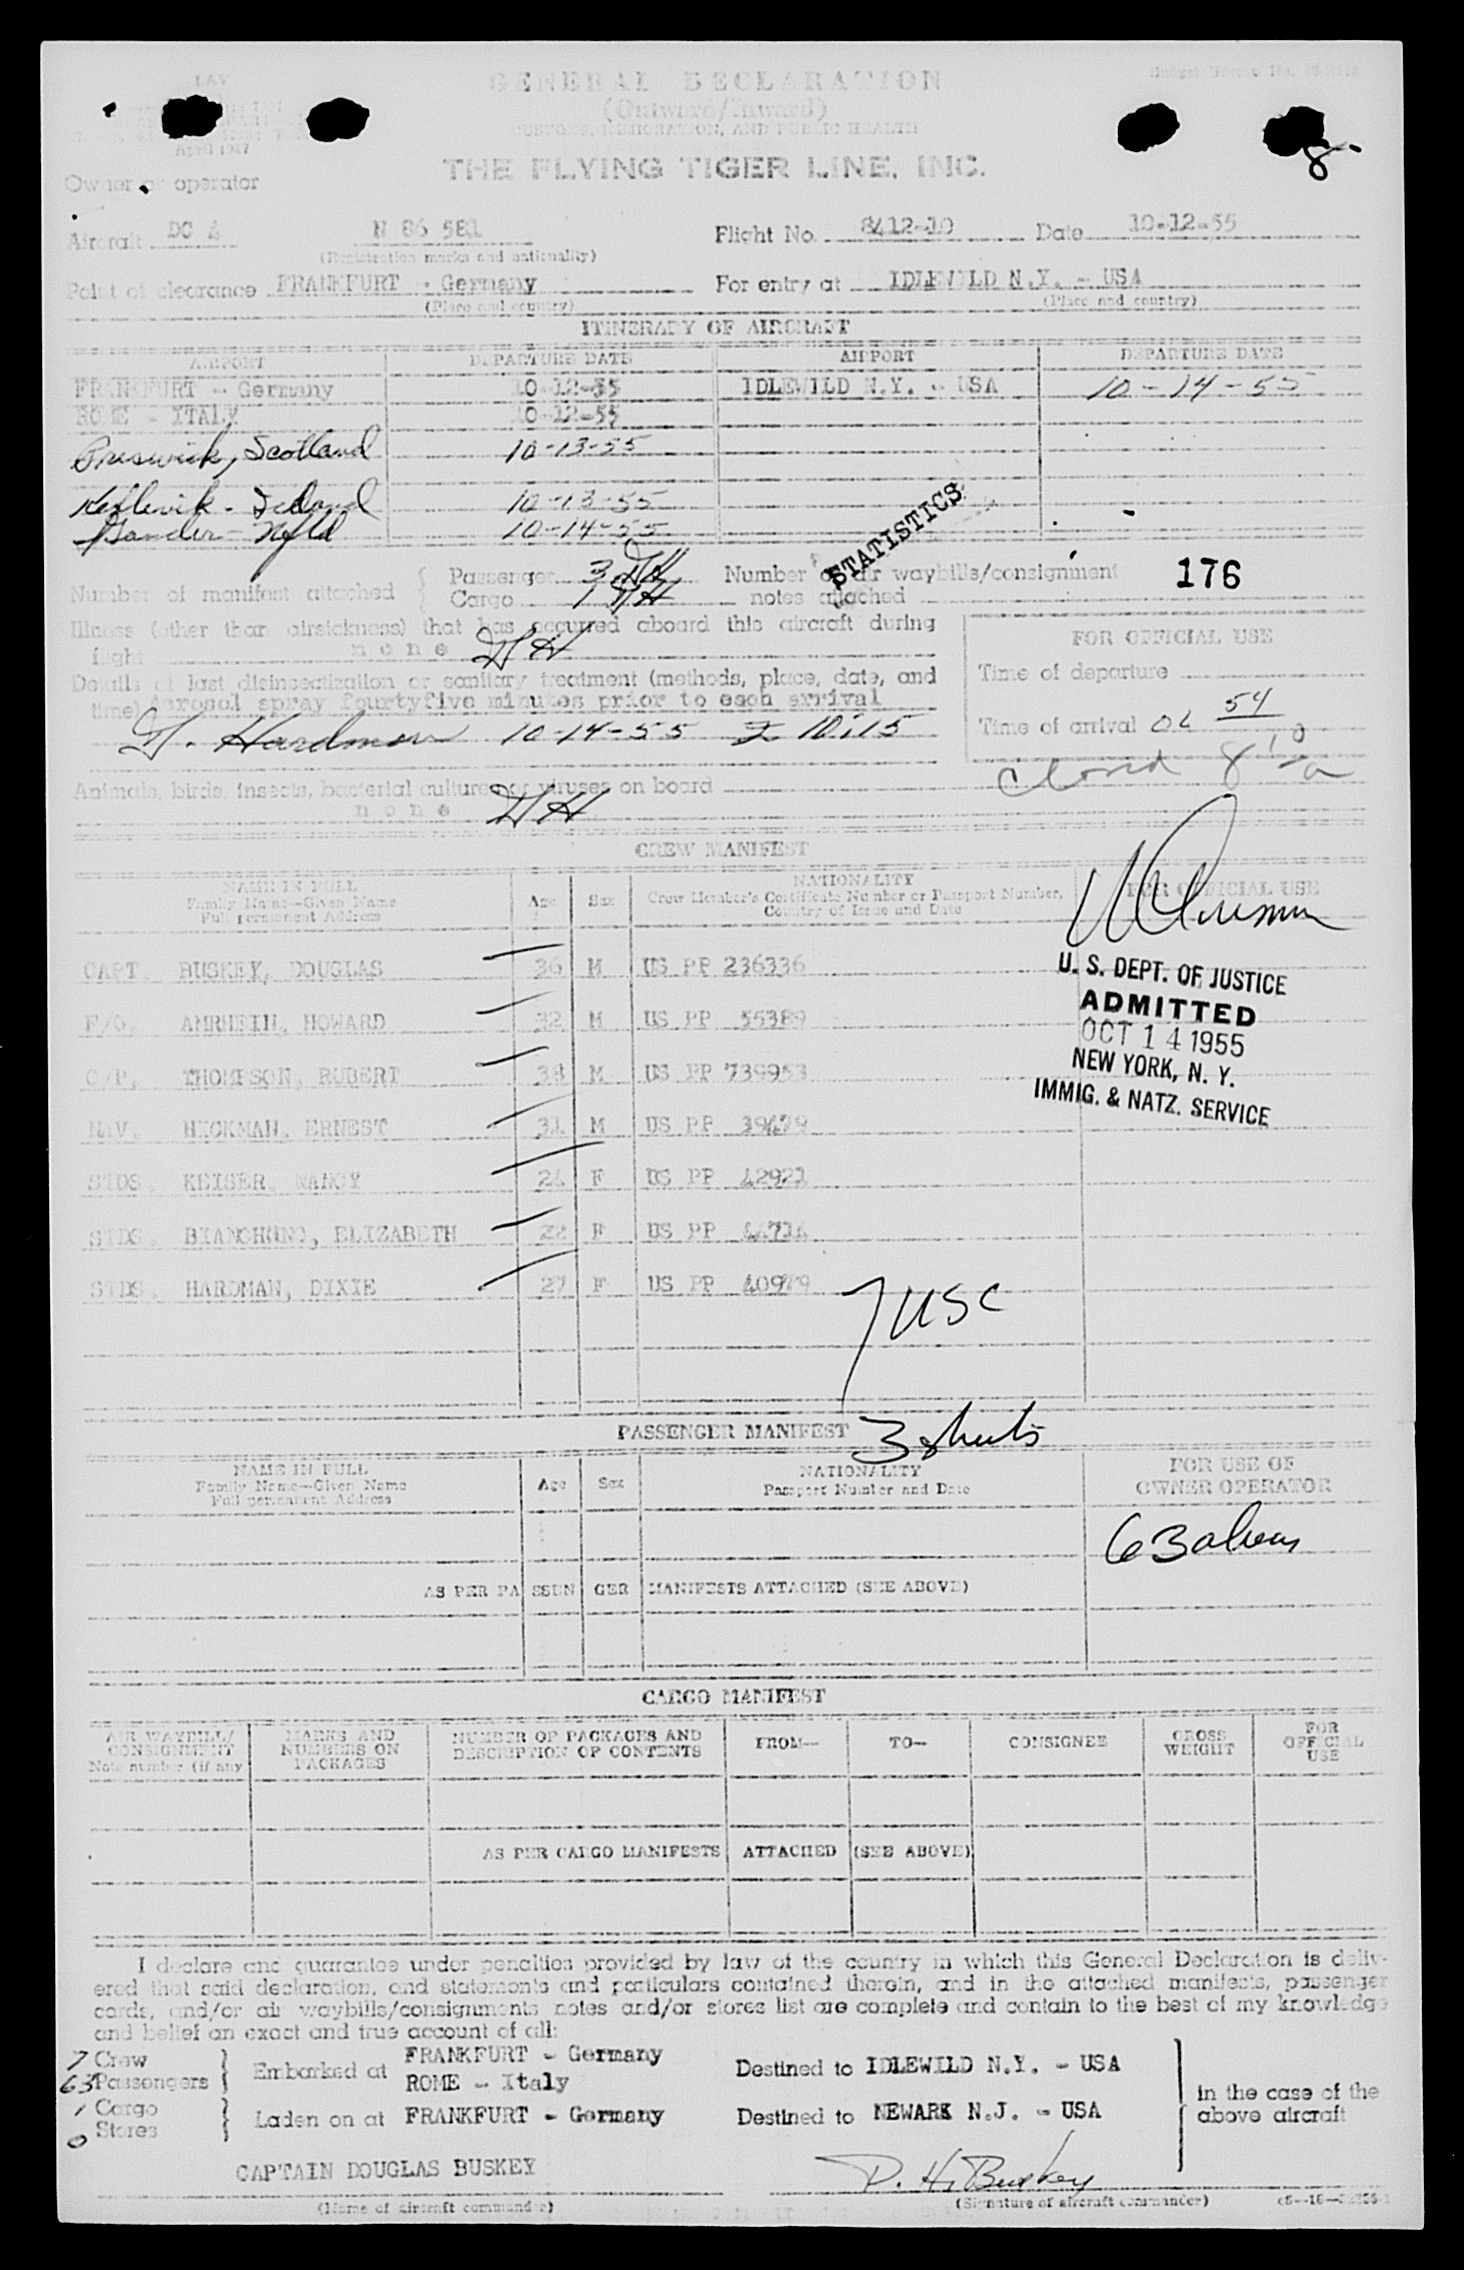 GENERAL DECLARATION
(Outward/Inward)
CUSTOMS, IMMIGRATION, AND PUBLIC HEALTH
April 1947
THE FLYING TIGER LINE, INC.
8
Owner or operator
Aircraft DC 4 N 86 581 Flight No. 8412-10 Date 10-12-55
(Registration marks and nationality)
Point of clearance FRANKFURT - Germany For entry at IDLEWILD N.Y. - USA
(Place and country) (Place and country)
ITINERARY OF AIRCRAFT
AIRPORT DEPARTURE DATE AIRPORT DEPARTURE DATE
FRANKFURT - Germany 10-12-55 IDLEWILD N.Y. - USA 10-14-55
ROME - ITALY 10-12-55
Preswick, Scotland 10-13-55
Keflevik - Iceland 10-13-55
Gander - Nfld 10-14-55
STATISTICS
Number of manifest attached { Passenger 3 DH Number of air waybills/consignment 176
Cargo 1 DH notes attached
Illness (other than airsickness) that has occurred aboard this aircraft during
flight none DH
FOR OFFICIAL USE
Details of last disinsectization or sanitary treatment (methods, place, date, and
time) Aerosol spray fourtyfive minutes prior to each arrival
D. Hardman 10-14-55 10:15
Time of departure
Time of arrival 06 54
8 10 a
Animals, birds, insects, bacterial cultures or viruses on board
none DH
CREW MANIFEST
NAME IN FULL
Family Name—Given Name
Full permanent Address
Age Sex
NATIONALITY
Crew Member's Certificate Number or Passport Number,
Country of Issue and Date
FOR OFFICIAL USE
CAPT. BUSKEY, DOUGLAS 36 M US PP 236336
F/O. AMRHEIN, HOWARD 32 M US PP 55389
C/P. THOMPSON, ROBERT 38 M US PP 739953
NAV. HICKMAN, ERNEST 31 M US PP 39679
STDS. KEISER, NANCY 24 F US PP 42921
STDS. ELIZABETH 22 F US PP
STDS. HARDMAN, DIXIE 27 F US PP 40979
U. S. DEPT. OF JUSTICE
ADMITTED
OCT 14 1955
NEW YORK, N. Y.
IMMIG. & NATZ. SERVICE
7 USC
PASSENGER MANIFEST 3 sheets
NAME IN FULL
Family Name—Given Name
Full permanent Address
Age Sex
NATIONALITY
Passport Number and Date
FOR USE OF
OWNER OPERATOR
63 aliens
AS PER PASSENGER MANIFESTS ATTACHED (SEE ABOVE)
CARGO MANIFEST
AIR WAYBILL/
CONSIGNMENT
Note number (if any
MARKS AND
NUMBERS ON
PACKAGES
NUMBER OF PACKAGES AND
DESCRIPTION OF CONTENTS
FROM— TO— CONSIGNEE
GROSS
WEIGHT
FOR
OFFICIAL
USE
AS PER CARGO MANIFESTS ATTACHED (SEE ABOVE)
I declare and guarantee under penalties provided by law of the country in which this General Declaration is deliv-
ered that said declaration, and statements and particulars contained therein, and in the attached manifests, passenger
cards, and/or air waybills/consignments notes and/or stores list are complete and contain to the best of my knowledge
and belief an exact and true account of all:
7 Crew
63 Passengers
Embarked at FRANKFURT - Germany
ROME - Italy
Destined to IDLEWILD N.Y. - USA
1 Cargo
0 Stores
Laden on at FRANKFURT - Germany Destined to NEWARK N.J. - USA
in the case of the
above aircraft
CAPTAIN DOUGLAS BUSKEY D. H. Buskey
(Name of aircraft commander) (Signature of aircraft commander)